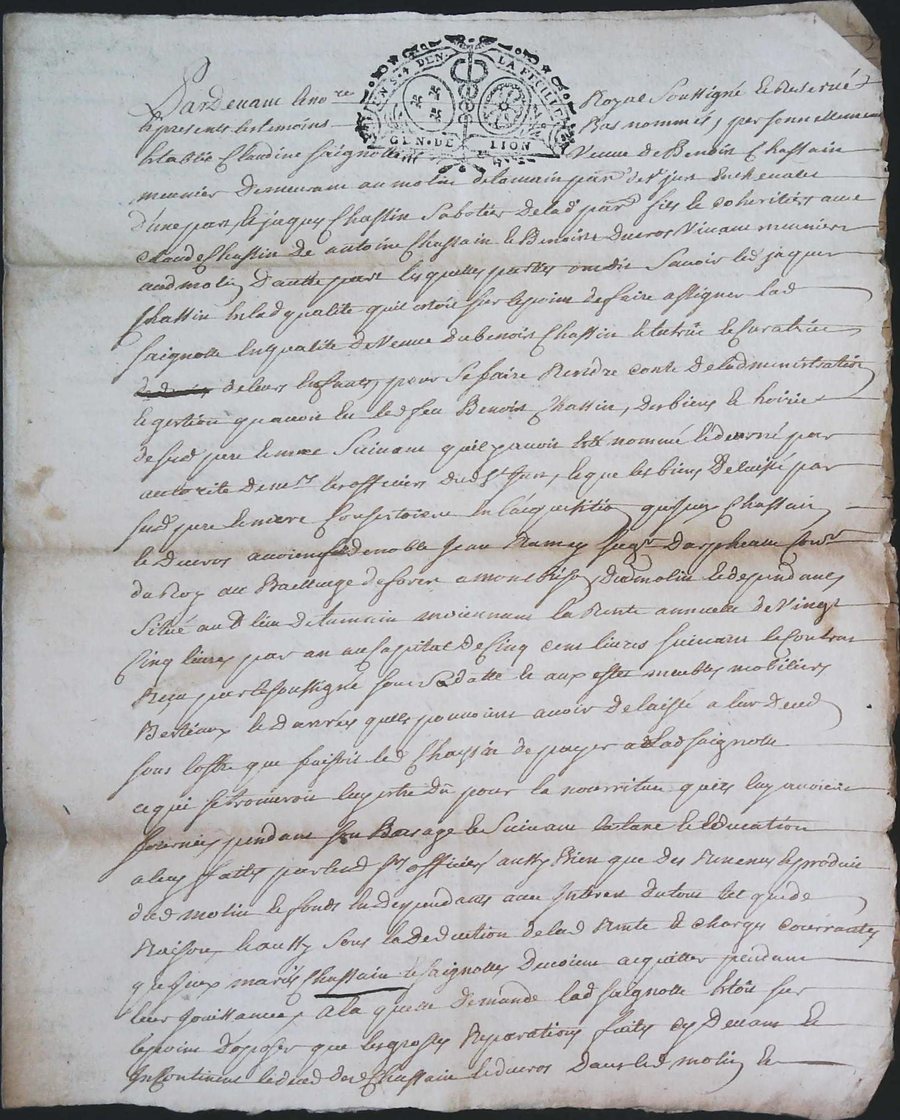 GEN · DE LION
Pardevant le no.re Royal Soussigné et Reservé
et presents les temoins Bas nommés, personnellement
Establie Claudine Saignolle Veuve de Benoit Chassain
meunier demeurant au molin
d'une part, et jaques Chassin Sabotier de lad. par. fils et coheritier avec
Claude Chassin de antoine Chassain et Benoite Ducros vivant meuniers
aud molin d'autre part lesquelles parties ont dit Savoir led jaques
Chassin en lad qualité qu'il estoit sur le point de faire assigner lad
Saignolle en qualité de Veuve du benoit Chassin et tutrice et curatrice
de leurs Enfants, pour se faire Rendre conte de l'administration
et gestion qu'avoit eu led feu Benoit Chassin, des biens et hoirie
de sesd pere et mere Suivant qu'il y avoit esté nommé
autorité de m.rs les officiers dud St , et que les biens Delaissé par
sesd pere et mere Consistoient en l'acquisition Chassain
et Ducros avoient de noble Jean Ramey
du Roy au Bailliage de forez a montbrison, Dud molin et dependances
Situé au d lieu moienant la Rente annuelle de Vingt
Cinq livres par an au Capital de Cinq cens livres Suivant le Contrat
Receu par le soussigné sous sa datte et aux meubles mobiliers
Bestiaux et danrées quils pouvoient avoir delaissé a leur deced
sous l'offre que faisoit led Chassin de payer a lad Saignolle
ce qui se trouveroit luy estre dû pour la nourriture qu'ils luy avoient
fournies pendant son Bas age et Suivant la taxe et Education
a luy faites par lesd srs officiers aussy Bien que des Revenus et produit
dud molin et fonds en dependants avec Interest du tout tel que de
Raison, et aussy sous la Deduction de lad Rente et charges courrantes
que feux mariés Chassain et Saignolles acquitter pendant
leur Jouissance, a la quelle demande lad Saignolle Estoit sur
le point d'oposer que les grosses Reparations faites cy devant et
Incontinent le deced des Chassain et ducros Dans led molin et